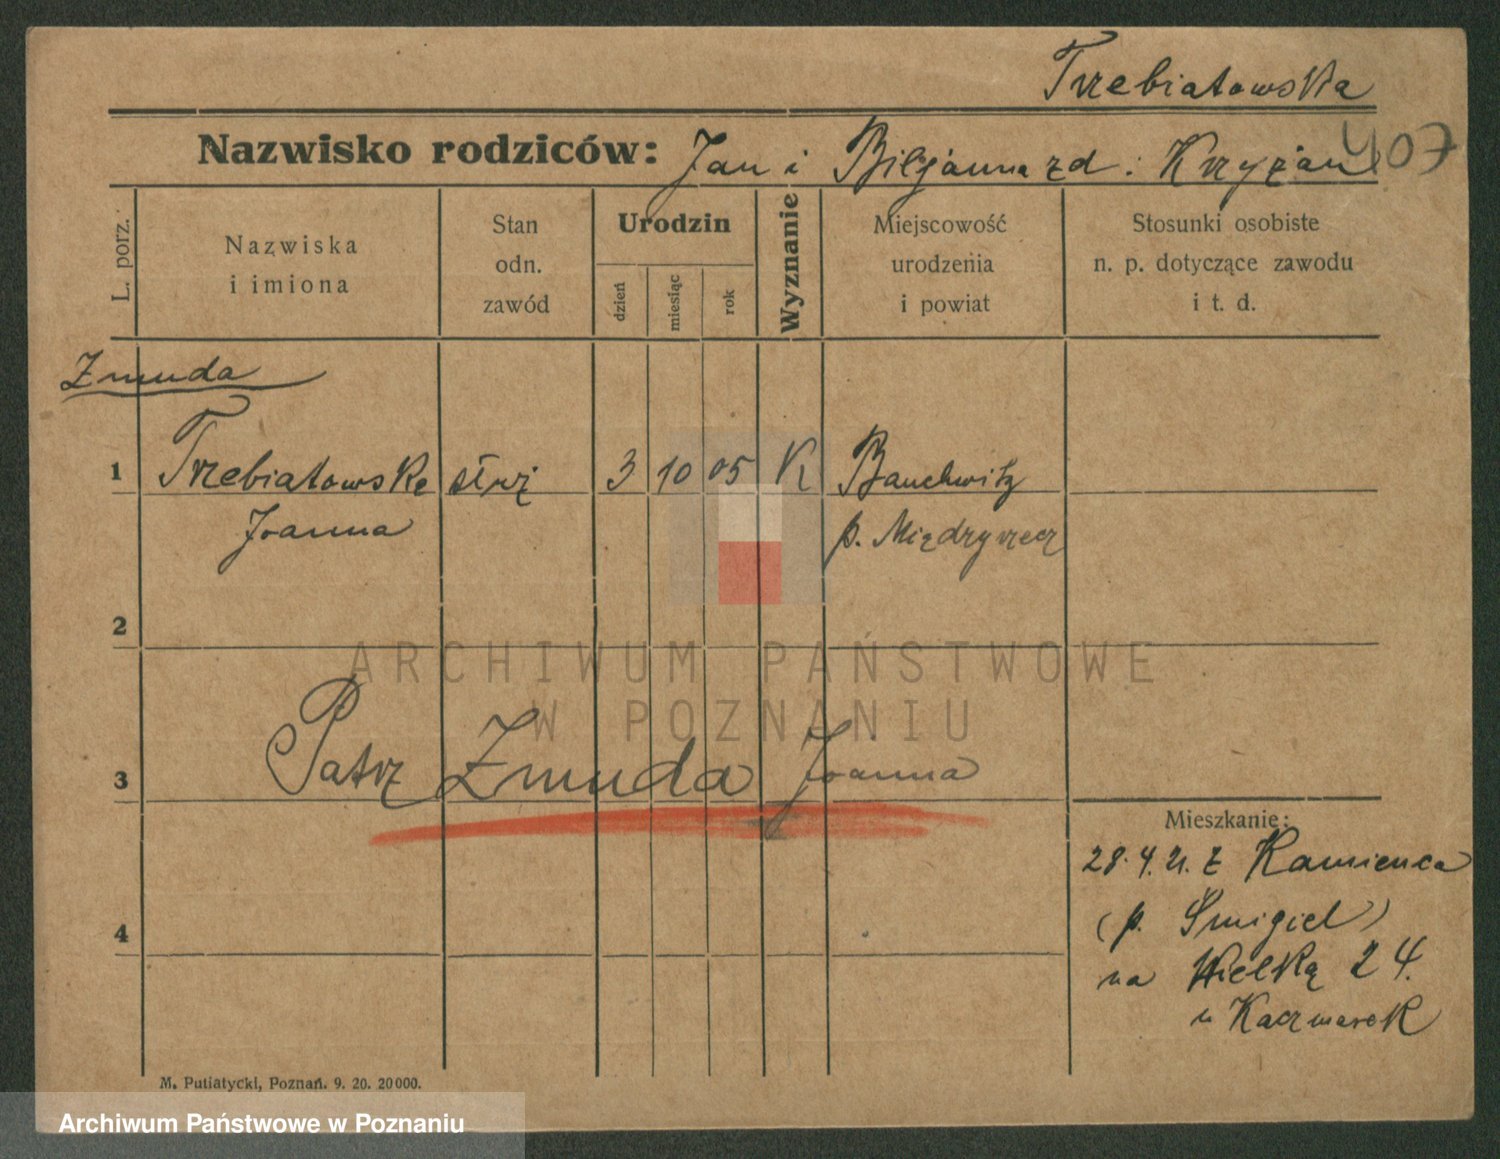 Trzebiatowska
Nazwisko rodziców: Jan i zd: Krzyżan
407
L. porz.
Nazwiska
i imiona
Stan
odn.
zawód
Urodzin
dzień
miesiąc
rok
Wyznanie
Miejscowość
urodzenia
i powiat
Stosunki osobiste
n. p. dotyczące zawodu
i t. d.
Zmuda
1 Trzebiatowska służ 3 10 05 K Bauchwitz
Joanna p. Międzyrzecz
2
ARCHIWUM PAŃSTWOWE
W POZNANIU
3 Patrz Zmuda Joanna
Mieszkanie:
28.4.21. z Kamieńca
(p. Śmigiel)
4
na Wielką 24.
u Kaczmarek
M. Putiatycki, Poznań. 9. 20. 20000.
Archiwum Państwowe w Poznaniu